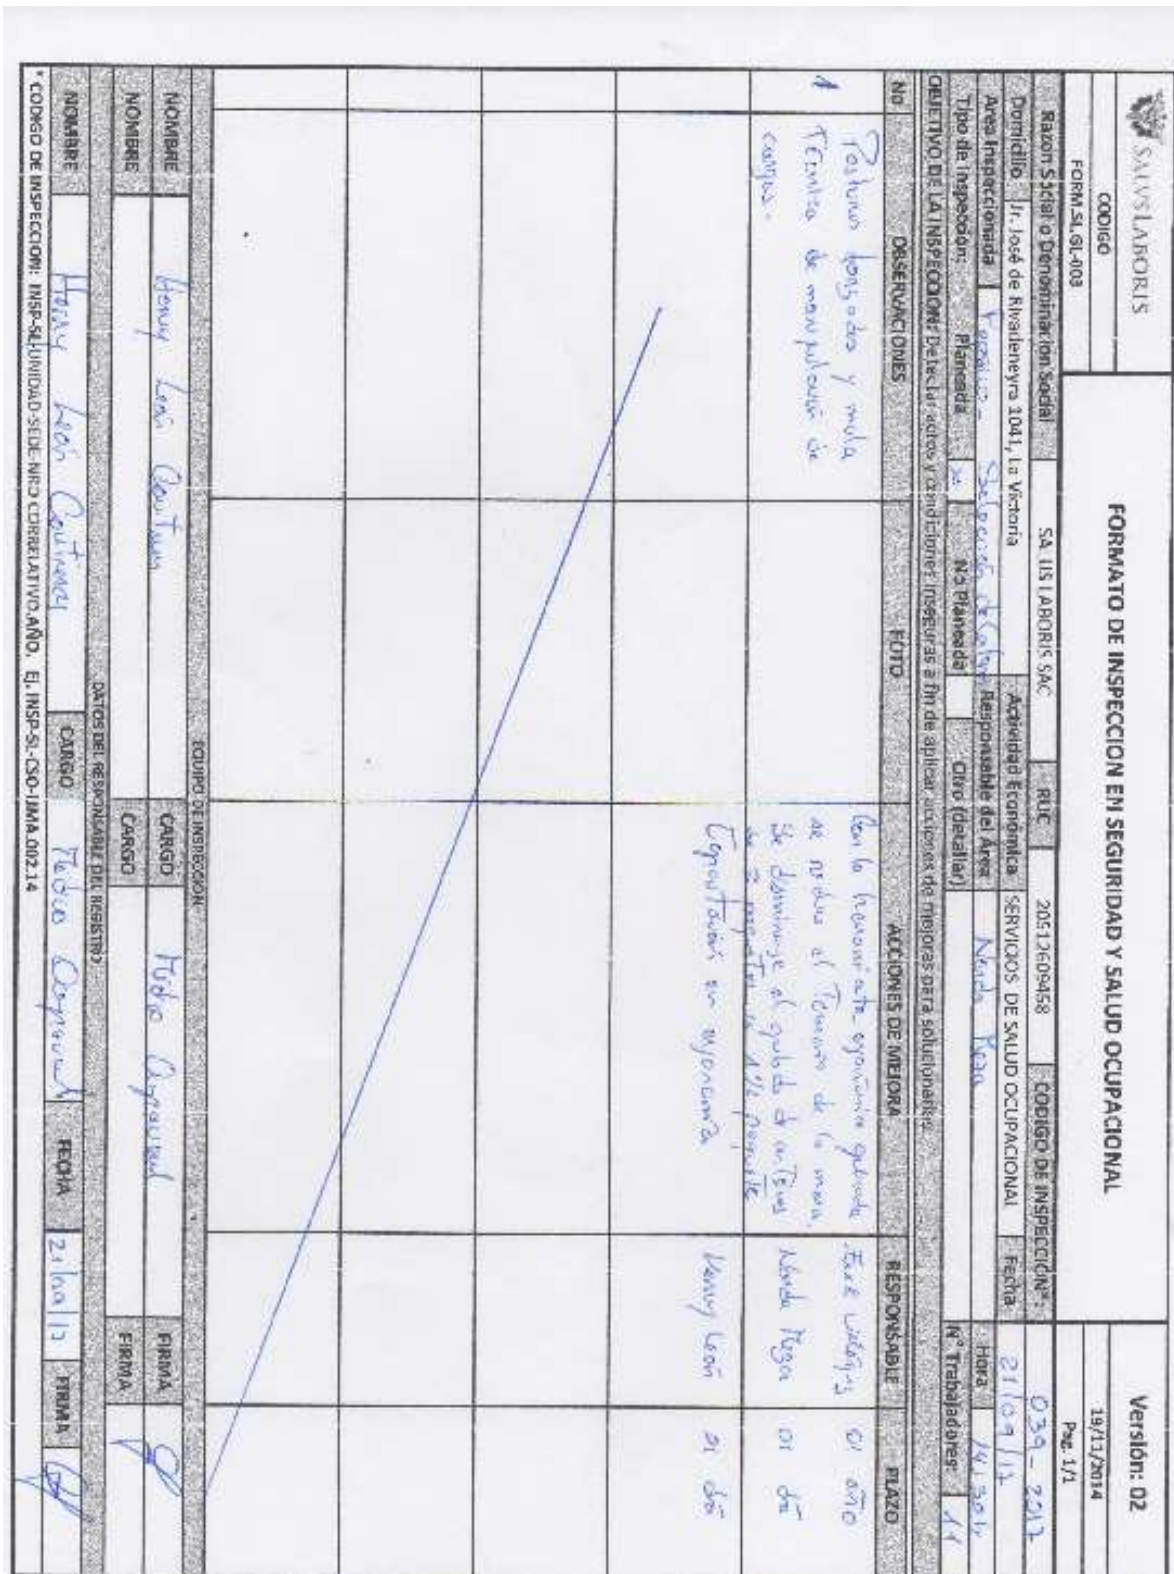 SALVS LABORIS
CODIGO
FORM.SL.GL-003
FORMATO DE INSPECCION EN SEGURIDAD Y SALUD OCUPACIONAL
Versión: 02
19/11/2014
Pag. 1/1
Razon Social o Denominacion Social SALUS LABORIS SAC RUC 20512609458 CODIGO DE INSPECCIÓN°: 039-2017
Domicilio Jr. José de Rivadeneyra 1041, La Victoria Actividad Económica SERVICIOS DE SALUD OCUPACIONAL Fecha 21/09/17 Hora 14:30h
Area Inspeccionada Responsable del Área Meza N° Trabajadores: 11
Tipo de Inspeccion: Planeada x No Planeada Otro (detallar)
OBJETIVO DE LA INSPECCION: Detectar actos y condiciones inseguras a fin de aplicar acciones de mejoras para solucionarlas
No OBSERVACIONES FOTO ACCIONES DE MEJORA RESPONSABLE PLAZO
1 Posturas forzadas y mala
Técnica de manipulación de
cargas.
Con la herramienta
se reduce el de la mesa. 01 año
Se disminuye el de 01 día
de a 1 1/2
en ergonomía Henry León 01 día
EQUIPO DE INSPECCIÓN
NOMBRE Henry León CARGO Médico Ocupacional FIRMA
NOMBRE CARGO FIRMA
DATOS DEL RESPONSABLE DEL REGISTRO
NOMBRE Henry León CARGO Médico Ocupacional FECHA 21/09/17 FIRMA
*CODIGO DE INSPECCION: INSP-SL-UNIDAD-SEDE-NRO CORRELATIVO.AÑO. Ej. INSP-SL-CSO-JJMA.002.14